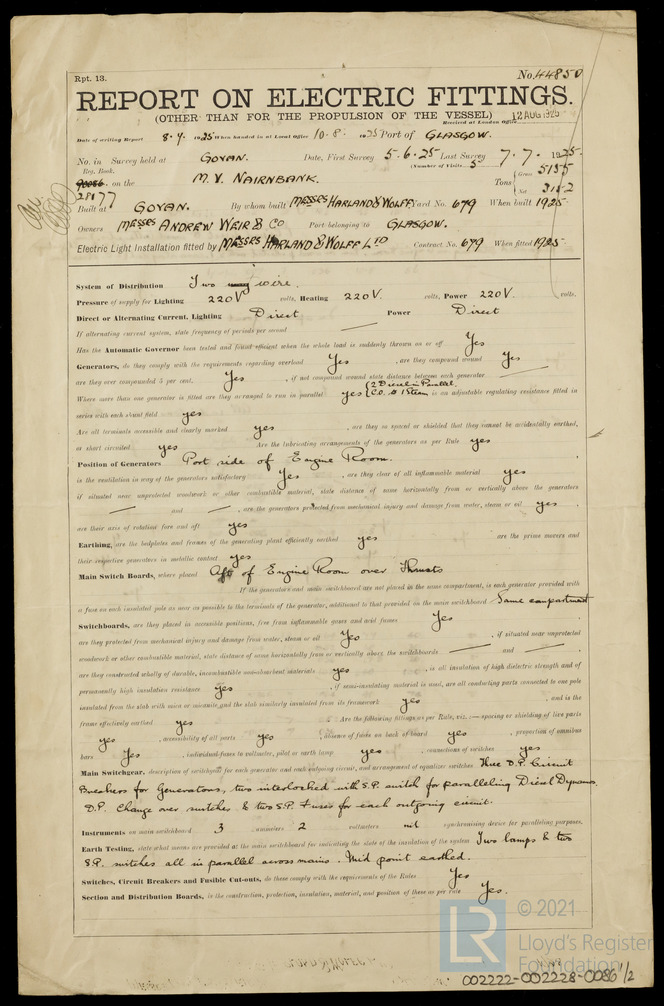 Rpt. 13.
No. 44850
REPORT ON ELECTRIC FITTINGS.
(OTHER THAN FOR THE PROPULSION OF THE VESSEL)
Received at London Office 12 AUG 1925
Date of writing Report 8.7. 1925 When handed in at Local Office 10.8. 1925 Port of GLASGOW.
No. in Survey held at GOVAN. Date, First Survey 5.6.25 Last Survey 7.7. 1925.
Reg. Book. (Number of Visits 5
90086 on the M.V. NAIRNBANK. Tons Gross 5155
28177 Net 3152
Built at GOVAN. By whom built MESSRS HARLAND & WOLFF. Yard No. 679 When built 1925
Owners MESSRS ANDREW WEIR & CO Port belonging to GLASGOW.
Electric Light Installation fitted by MESSRS HARLAND & WOLFF LTD Contract No. 679 When fitted 1925
System of Distribution Two wire.
Pressure of supply for Lighting 220V volts, Heating 220V. volts, Power 220V. volts.
Direct or Alternating Current, Lighting Direct Power Direct
If alternating current system, state frequency of periods per second
Has the Automatic Governor been tested and found efficient when the whole load is suddenly thrown on or off Yes
Generators, do they comply with the requirements regarding overload Yes, are they compound wound Yes
are they over compounded 5 per cent. Yes, if not compound wound state distance between each generator
Where more than one generator is fitted are they arranged to run in parallel yes (2 Diesel in Parallel. C.O. to 1 Steam is an adjustable regulating resistance fitted in
series with each shunt field yes
Are all terminals accessible and clearly marked yes, are they so spaced or shielded that they cannot be accidentally earthed,
or short circuited yes Are the lubricating arrangements of the generators as per Rule yes
Position of Generators Port side of Engine Room.
is the ventilation in way of the generators satisfactory Yes, are they clear of all inflammable material yes
if situated near unprotected woodwork or other combustible material, state distance of same horizontally from or vertically above the generators
— and —, are the generators protected from mechanical injury and damage from water, steam or oil yes,
are their axes of rotation fore and aft yes
Earthing, are the bedplates and frames of the generating plant efficiently earthed yes are the prime movers and
their respective generators in metallic contact yes
Main Switch Boards, where placed Aft of Engine Room over Thrusts
If the generators and main switchboard are not placed in the same compartment, is each generator provided with
a fuse on each insulated pole as near as possible to the terminals of the generator, additional to that provided on the main switchboard Same compartment
Switchboards, are they placed in accessible positions, free from inflammable gases and acid fumes Yes,
are they protected from mechanical injury and damage from water, steam or oil Yes, if situated near unprotected
woodwork or other combustible material, state distance of same horizontally from or vertically above the switchboards — and —,
are they constructed wholly of durable, incombustible non-absorbent materials yes, is all insulation of high dielectric strength and of
permanently high insulation resistance yes, if semi-insulating material is used, are all conducting parts connected to one pole
insulated from the slab with mica or micanite, and the slab similarly insulated from its framework yes, and is the
frame effectively earthed yes Are the following fittings as per Rule, viz.:—spacing or shielding of live parts
yes, accessibility of all parts yes, absence of fuses on back of board yes, proportion of omnibus
bars Yes, individual fuses to voltmeter, pilot or earth lamp yes, connections of switches yes
Main Switchgear, description of switchgear for each generator and each outgoing circuit, and arrangement of equalizer switches Three D.P. Circuit
Breakers for Generators, two interlocked with S.P. switch for paralleling Diesel Dynamos.
D.P. Change over switches & two S.P. Fuses for each outgoing circuit.
Instruments on main switchboard 3 ammeters 2 voltmeters nil synchronising device for paralleling purposes.
Earth Testing, state what means are provided at the main switchboard for indicating the state of the insulation of the system Two lamps & two
S.P. switches all in parallel across mains. Mid point earthed.
Switches, Circuit Breakers and Fusible Cut-outs, do these comply with the requirements of the Rules Yes
Section and Distribution Boards, is the construction, protection, insulation, material, and position of these as per rule Yes.
LR
© 2021
Lloyd's Register
Foundation
002222-002228-0086 1/2